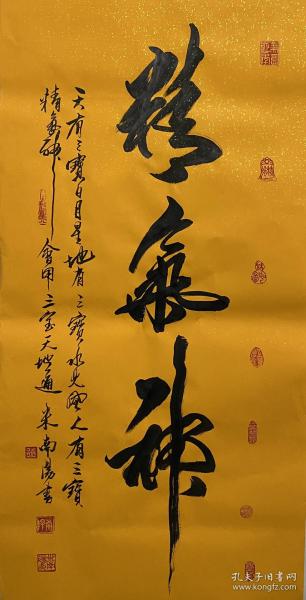 精氣神
天有三寶日月星地有三寶水火風人有三寶
精氣神會用三宝天地通米南陽書
孔夫子旧书网